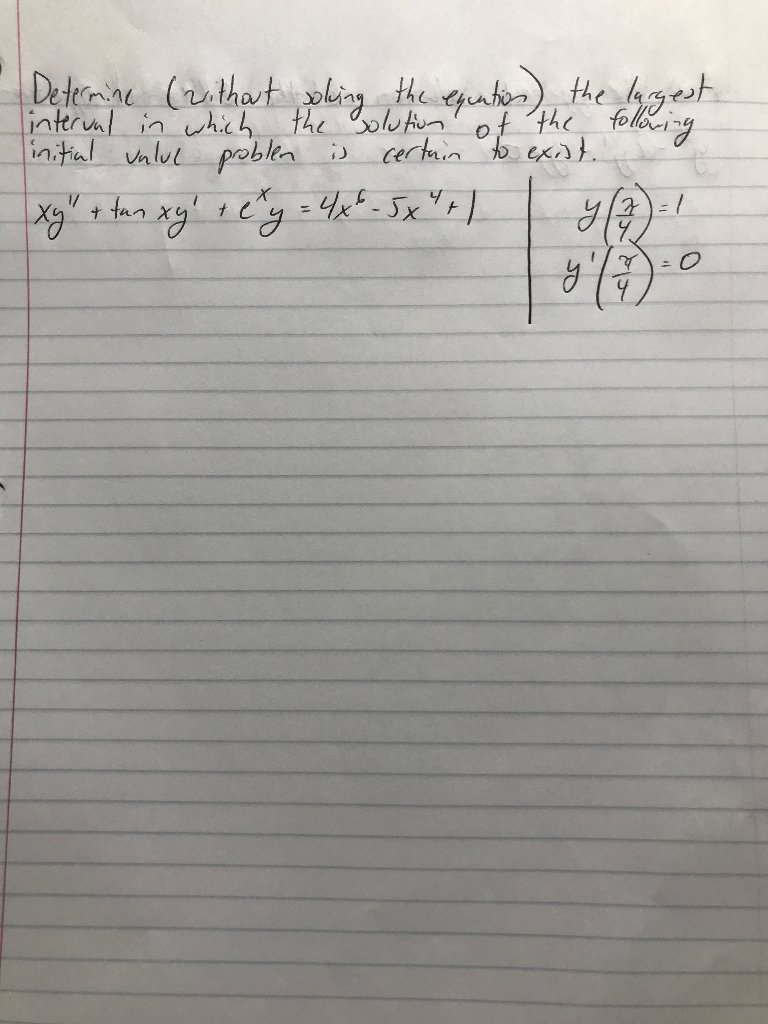 Determine (without solving the equation) the largest
interval in which the solution of the following
initial value problem is certain to exist.
xy" + tan xy' + e^x y = 4x^6 - 5x^4 + 1 | y(π/4) = 1
y'(π/4) = 0